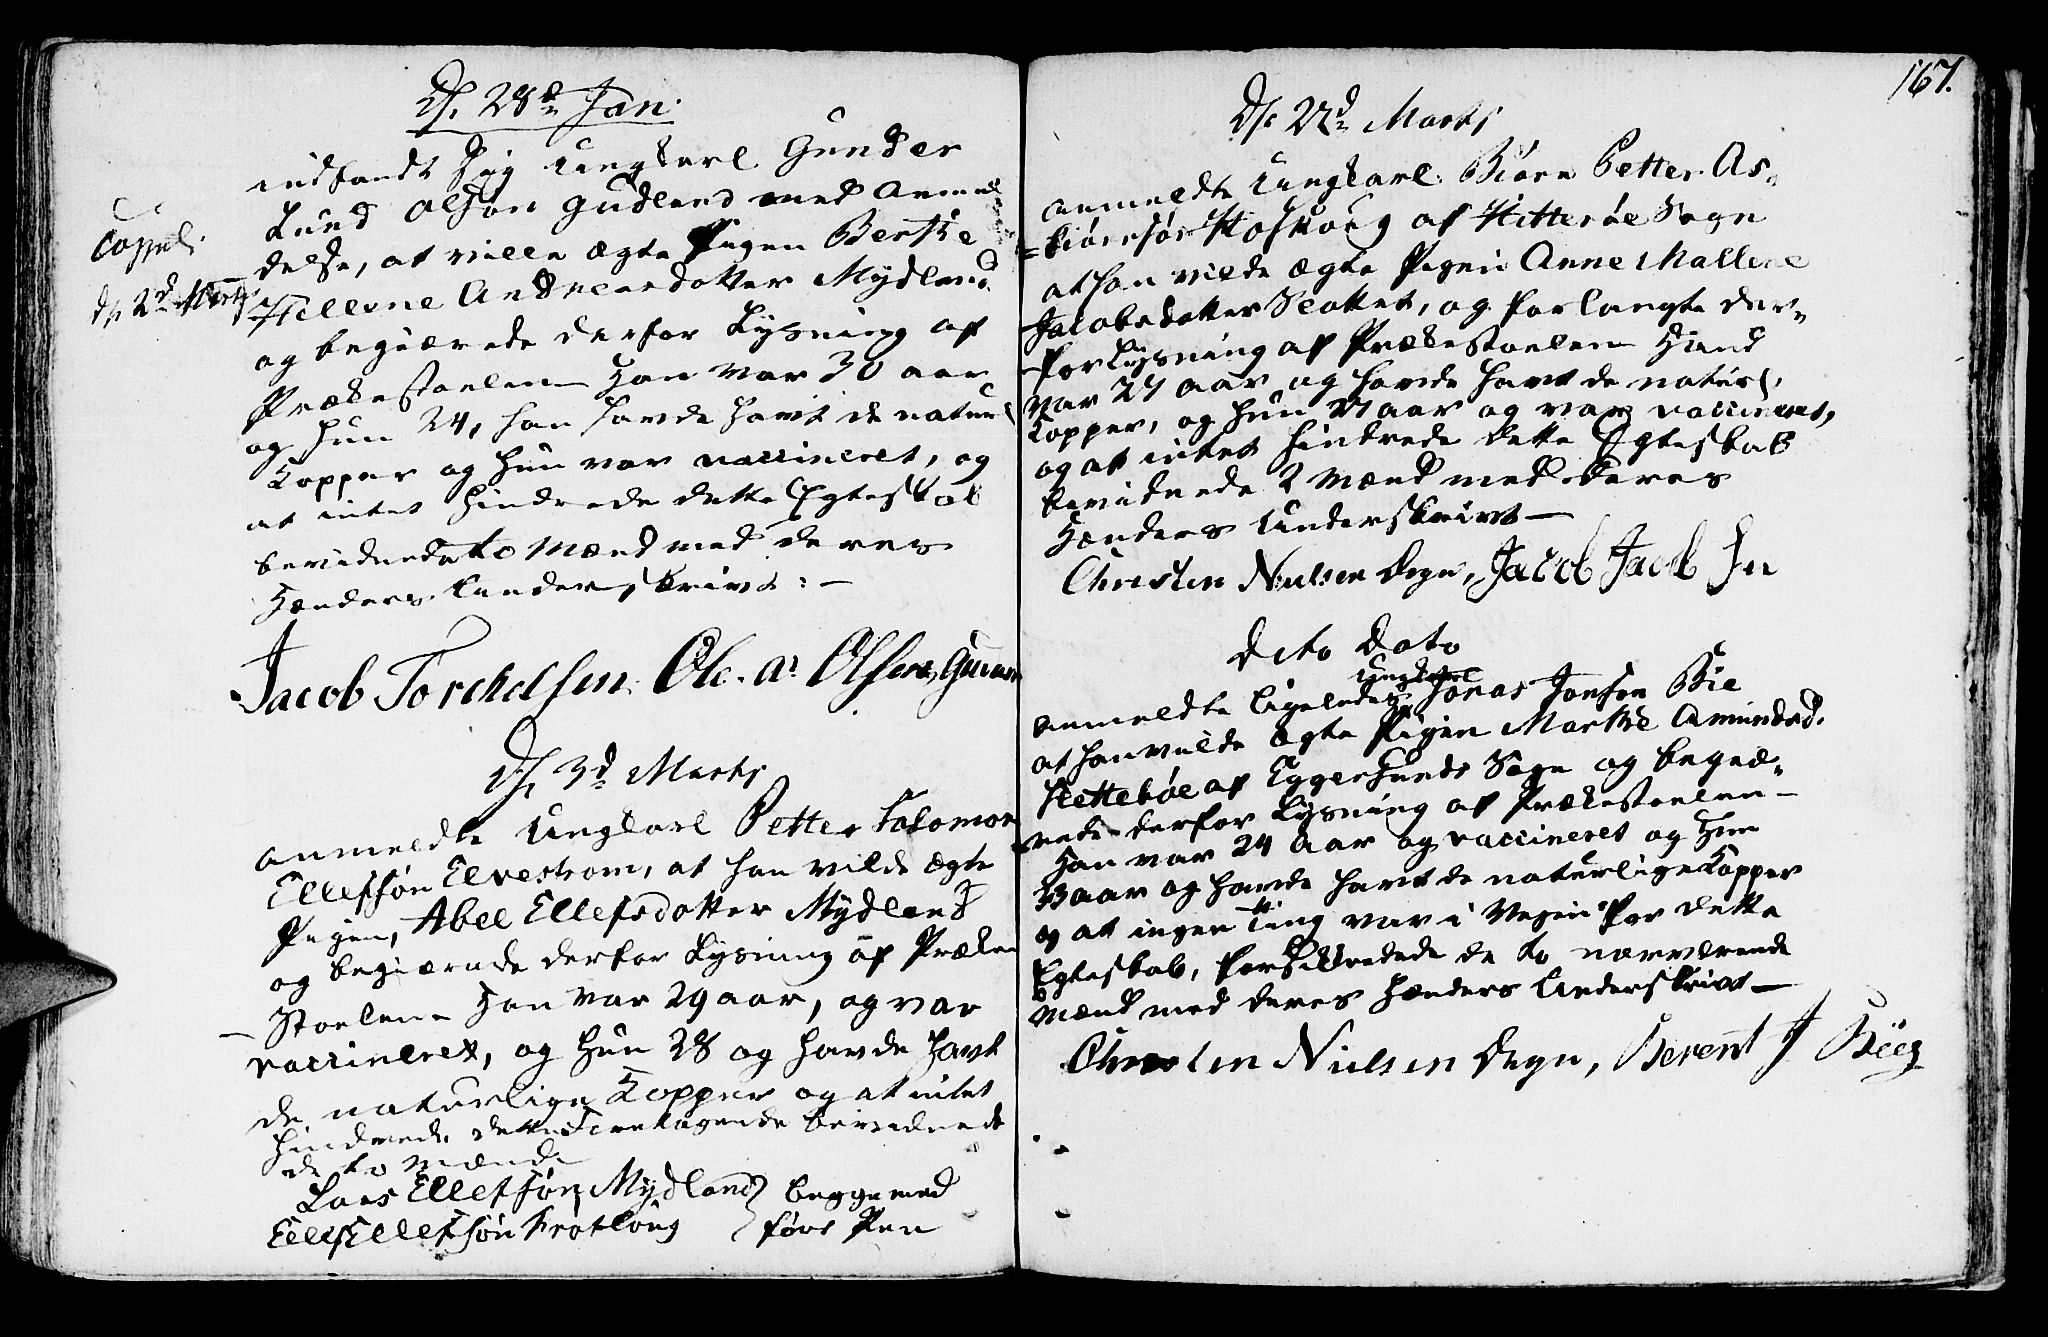 D. 28de Jan.
indfandt sig Ungkarl Gunder
Lund Olson Gudland med Anmel
delse, at ville ægte Pigen Berthe
Hellene Andreasdatter Mydland
og begiærede derfor Lysning af
Prækestoelen Han var 30 aar
og hun 24, han havde havt de naturl
Kopper og hun var vaccineret, og
at intet hindrede dette Egteskab
bevidnede to Mænd med deres
Hænders Underskrivt: —
Copul.
d. 2d
Jacob Torchelsen. Ole. A. Olsen
D. 3d Marts
anmeldte Ungkarl Petter Salomon
Ellefsøn Elvestrom, at han vilde ægte
Pigen, Abel Ellefsdatter Mydland
og begiærede derfor Lysning af Præke
— Stoelen Han var 29 aar, og var
vaccineret, og hun 28 og havde havt
de naturlige Kopper og at intet
hindrede dette Foretagende bevidnede
de to Mænd
Lars Ellefsøn Mydland } begge med
Ellefsøn }ført Pen
167.
D. 22d Marts
anmeldte Ungkarl Biørn Petter As-
=biørnsøn af Hitterøe Sogn
at han vilde ægte Pigen Anne Mallene
Jacobsdatter Slottet, og forlangte der-
for Lysning af Prækestoelen Hand
var 27 aar og havde havt de naturl.
Kopper, og hun 27 aar og var vaccineret,
og at intet hindrede dette Egteskab
bevidnede 2 Mænd med deres
Hænders Underskrivt —
Christen Nielsen Degn, Jacob Jacob
Dito Dato
anmeldte ligeledes Ungkarl Jonas Jonsen Bie
at han vilde ægte Pigen Marthe Amundsd.
Hettebøe af Eggersunds Sogn og begiæ-
rede derfor Lysning af Prækestoelen —
Han var 24 Aar og vaccineret og Hun
aar og havde havt de naturlige Kopper
og at ingen Ting var i Vejen for dette
Egteskab, forsikrede de to nærværende
Mænd med deres Hænders Underskrivt —
Christen Nielsen Degn, Berent J Bieg